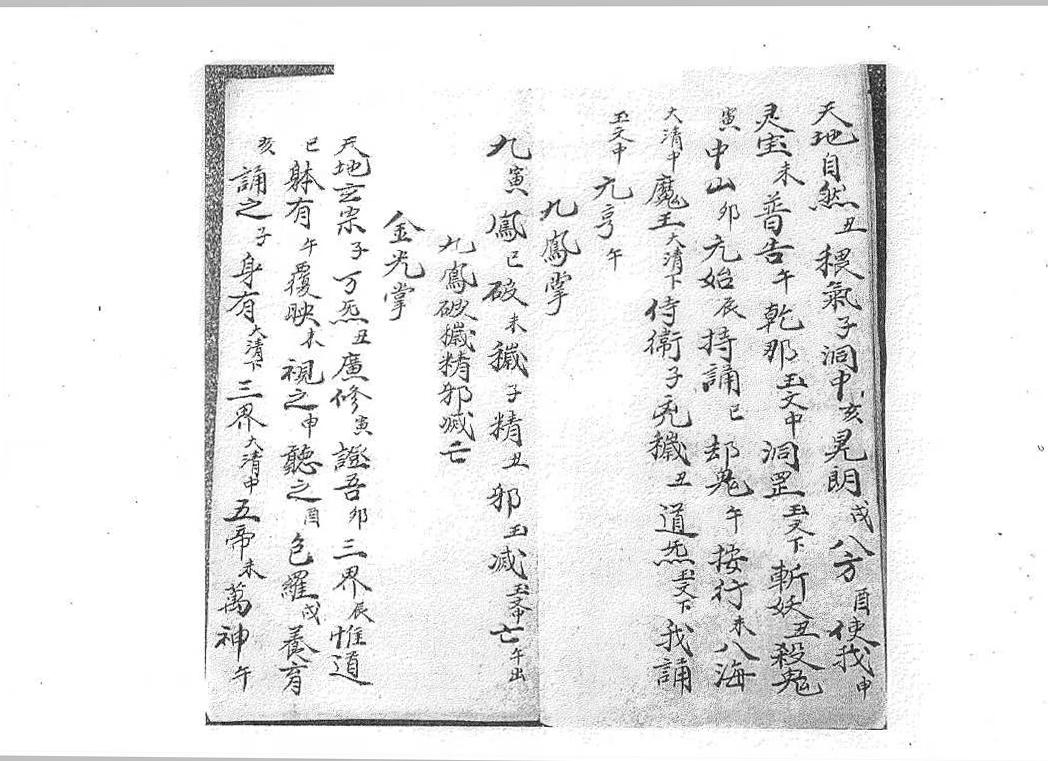 天地自然丑穢氣子洞中亥晃朗戌八方酉使我申
灵宝未普告午乾那玉文中洞罡玉文下斬妖丑殺鬼
寅中山卯元始辰持誦巳却鬼午按行未八海
大清中魔王大清下侍衛子兇穢丑道炁玉文下我誦
玉文中元亨午
九鳳掌
九寅鳳巳破未穢子精丑邪玉减玉文中亡午出
九鳳破穢精邪滅亡
金光掌
天地玄宗子万炁丑廣修寅證吾卯三界辰惟道
巳躰有午覆映未視之申聽之酉包羅戌養育
亥誦之子身有大清下三界大清中五帝未萬神午